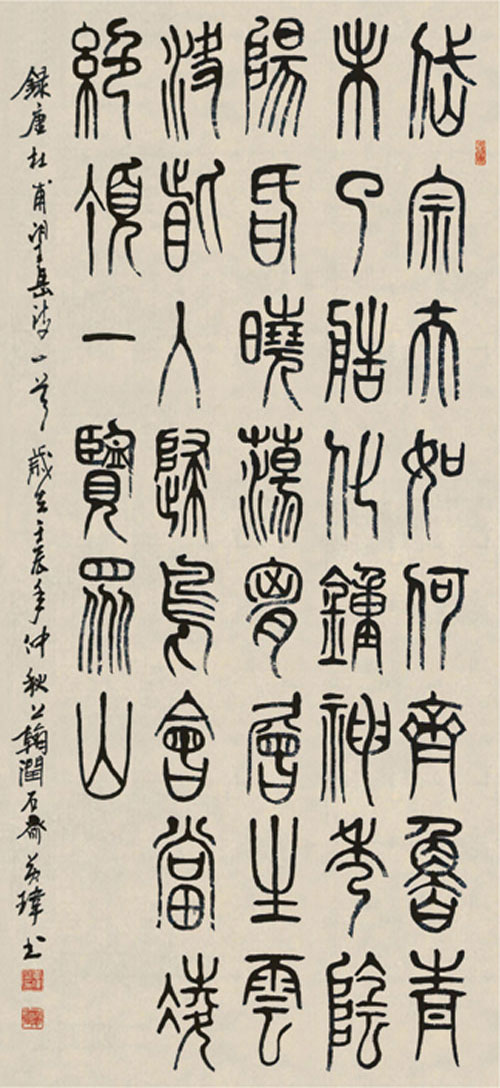 岱宗夫如何齊魯青
未了造化鍾神秀陰
陽昏曉蕩胸層生雲
決眥入歸鳥會當凌
絕頂一覽眾山
錄唐杜甫望岳詩一首 歲在壬辰年仲秋於翰潤石齋瑋書